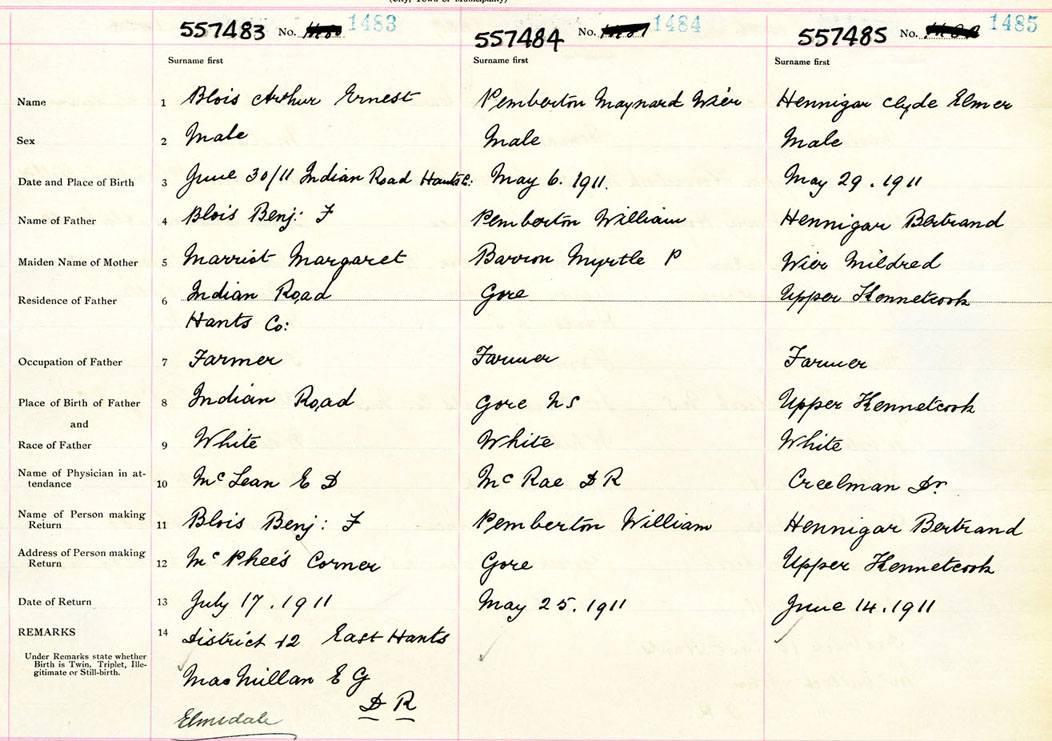 (City, Town or Municipality)
557483 No. 1483
557484 No. 1484
557485 No. 1485
Surname first Surname first Surname first
Name 1 Blois Arthur Ernest Pemberton Maynard Wier Hennigar Clyde Elmer
Sex 2 Male Male Male
Date and Place of Birth 3 June 30/11 Indian Road Hants C: May 6. 1911 May 29. 1911
Name of Father 4 Blois Benj: F Pemberton William Hennigar Bertrand
Maiden Name of Mother 5 Marriot Margaret Barron Myrtle P Wier Mildred
Residence of Father 6 Indian Road Gore Upper Kennetcook
Hants Co:
Occupation of Father 7 Farmer Farmer Farmer
Place of Birth of Father 8 Indian Road Gore NS Upper Kennetcook
and
Race of Father 9 White White White
Name of Physician in at-
tendance 10 McLean E D McRae D R Creelman Dr.
Name of Person making
Return 11 Blois Benj: F Pemberton William Hennigar Bertrand
Address of Person making
Return 12 McPhee's Corner Gore Upper Kennetcook
Date of Return 13 July 17. 1911 May 25. 1911 June 14. 1911
REMARKS 14 District 12 East Hants
Under Remarks state whether
Birth is Twin, Triplet, Ille-
gitimate or Still-birth.
MacMillan E G
D R
Elmsdale